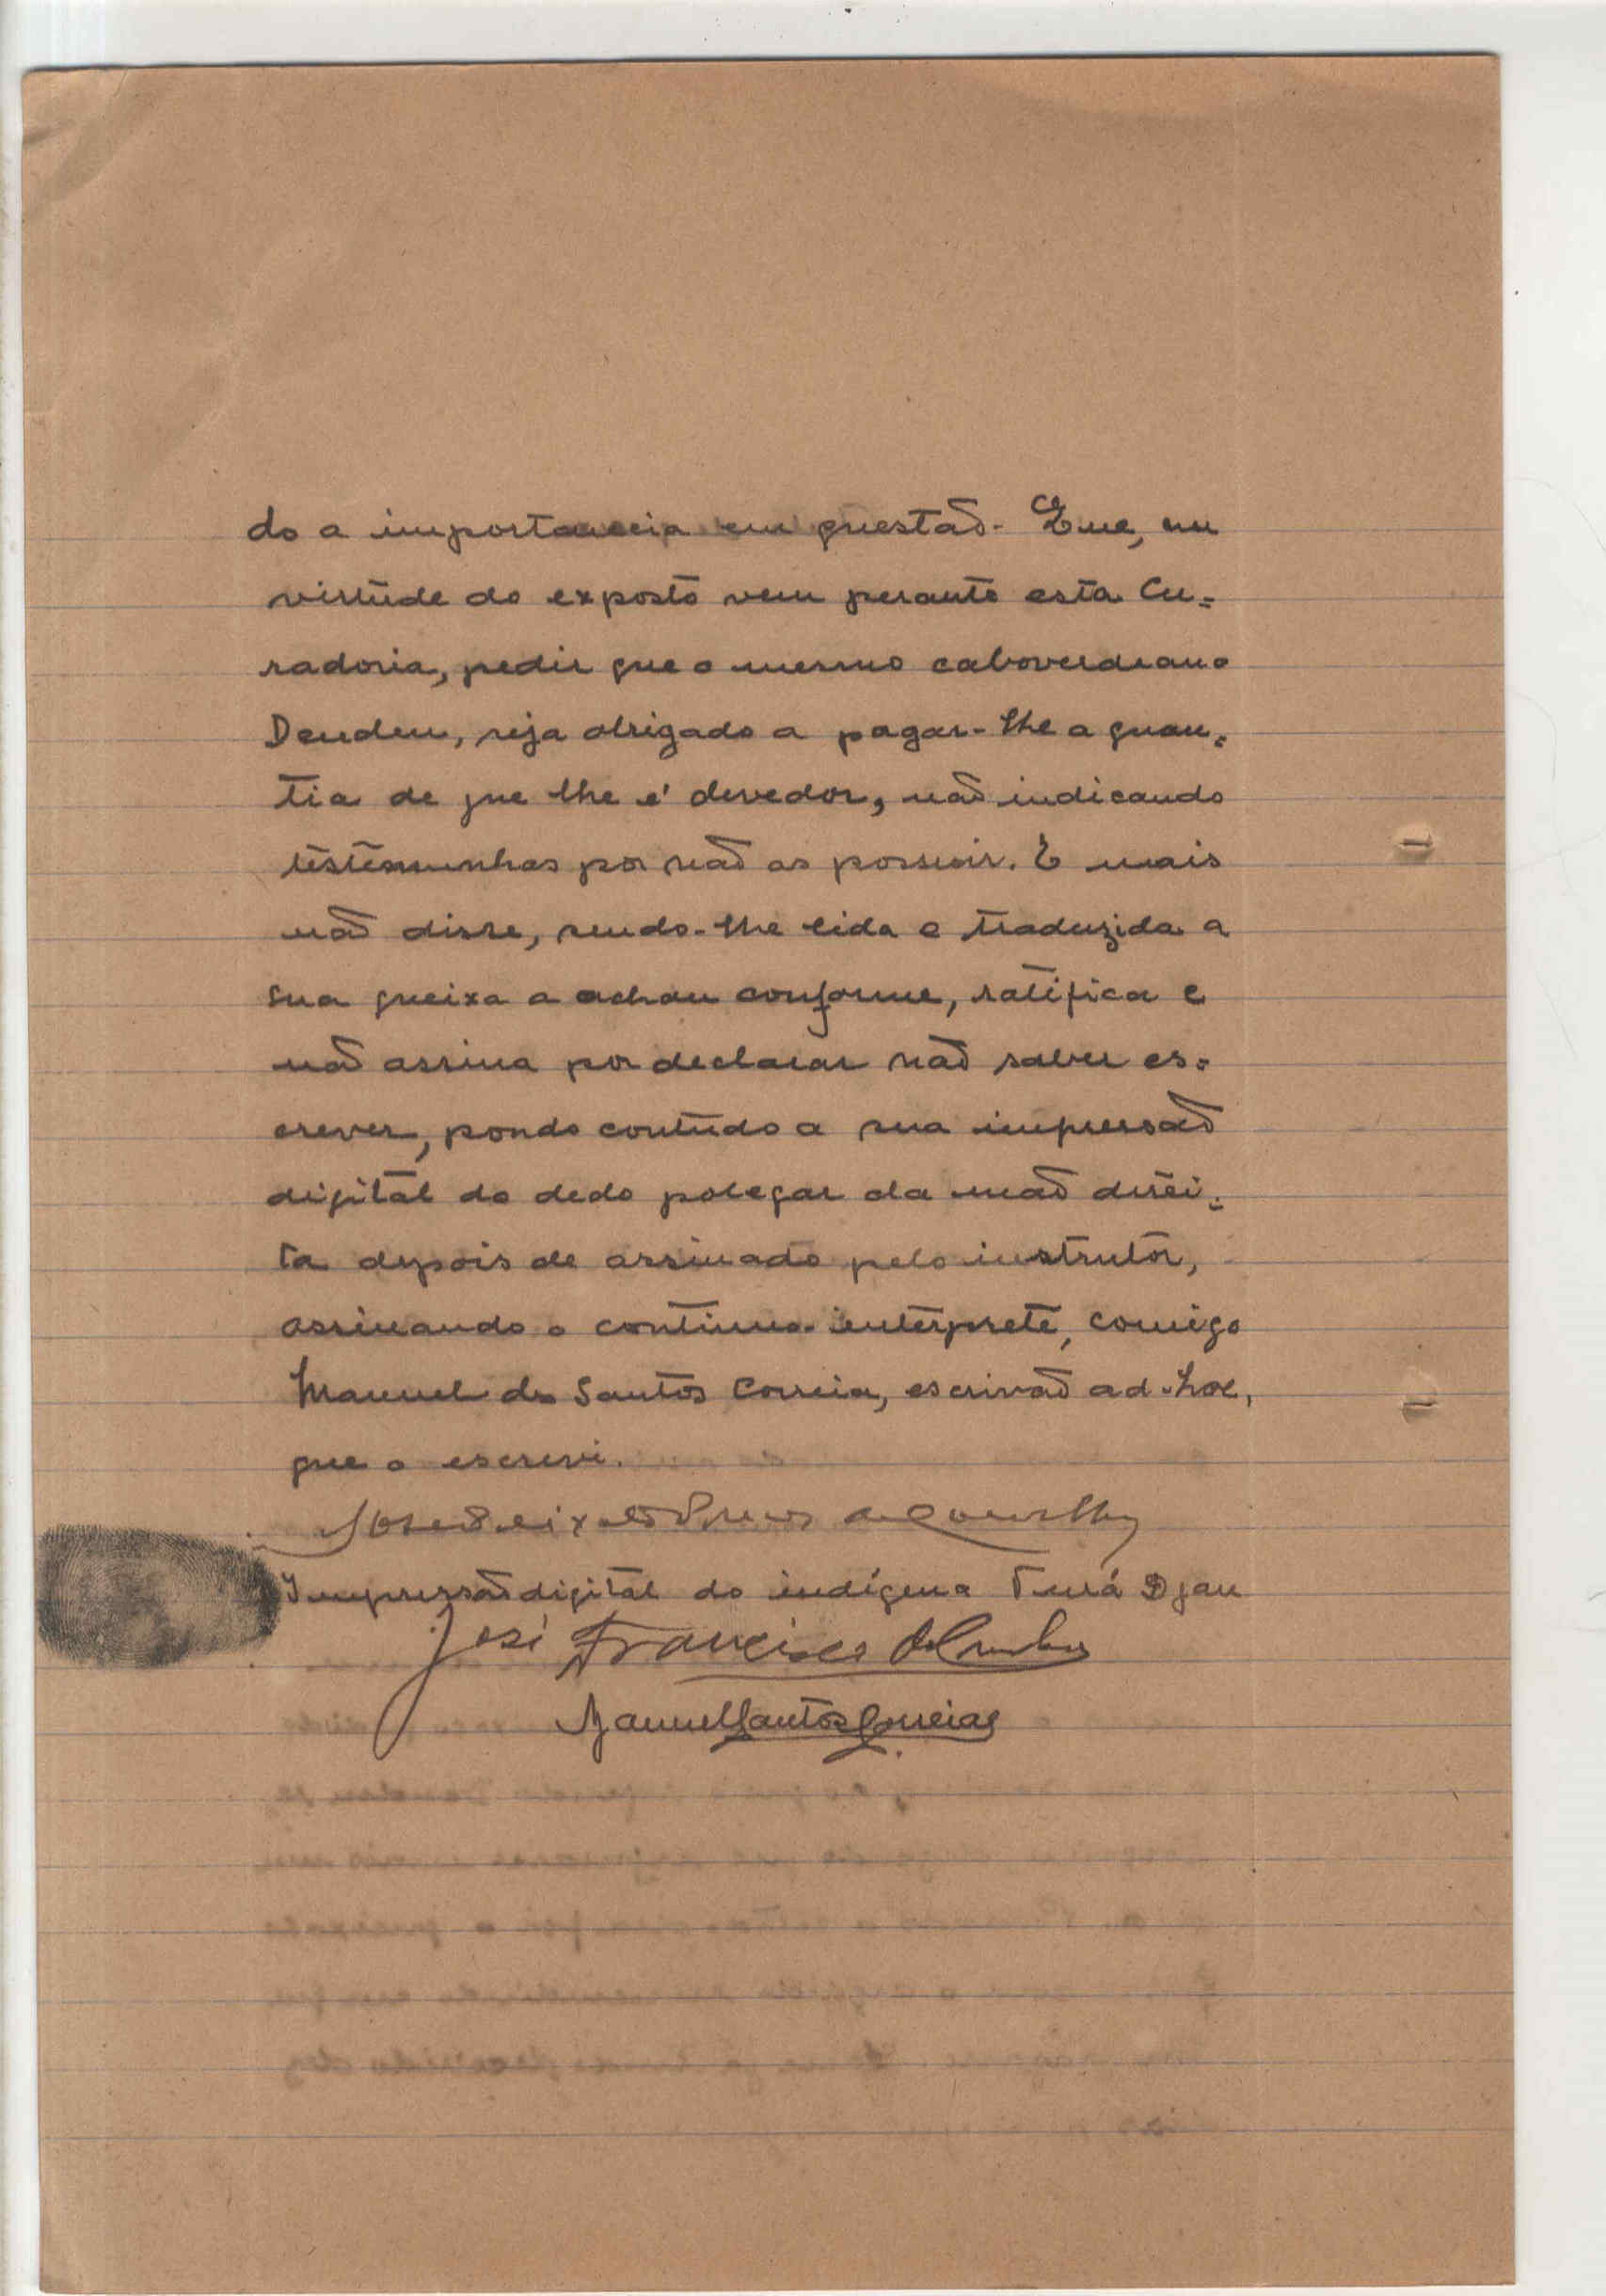 do a importancia em questão. Que, em
virtude do exposto vem perante esta Cu=
radoria, pedir que o mesmo caboverdeano
Dendem, seja obrigado a pagar-lhe a quan=
tia de que lhe é devedor, não indicando
testemunhas por não as possuir. E mais
não disse, sendo-lhe lida e traduzida a
sua queixa a achou conforme, ratifica e
não assina por declarar não saber es=
crever, pondo contudo a sua impressão
digital do dedo polegar da mão direi=
ta depois de assinado pelo instrutor,
assinando o continuo-intérprete, comigo
Manuel dos Santos Correia, escrivão ad-hoc,
que o escrevi.
José
Impressão digital do indígena Djau
José Francisco
Manuel Santos Correia